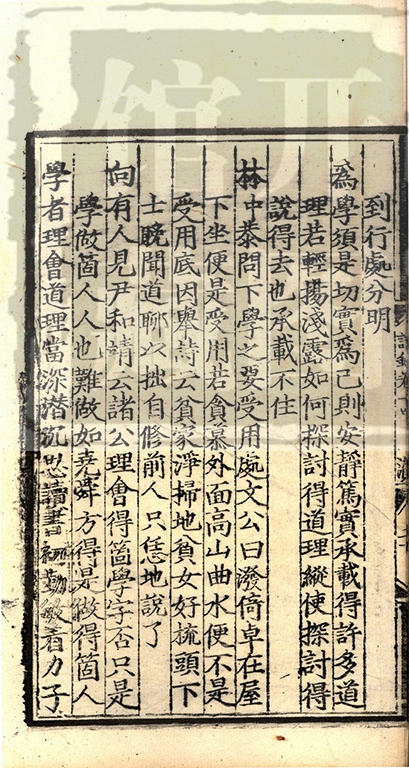 到行處分明
為學須是切實爲己則安靜篤實承載得許多道
理若輕揚淺露如何探討得道理縱使探討得
說得去也承載不住
林中㳟問下學之要受用處文公曰潑倚卓在屋
下坐便是受用若貪慕外面高山曲水便不是
受用底因舉詩云貧家淨掃地貧女好梳頭下
士晚聞道聊以拙自修前人只恁地說了
向有人見尹和靖云諸公理會得箇學字否只是
學做箇人人也難做如堯舜方得是做得箇人
學者理會道理當深潛沉思讀書
看力子
館